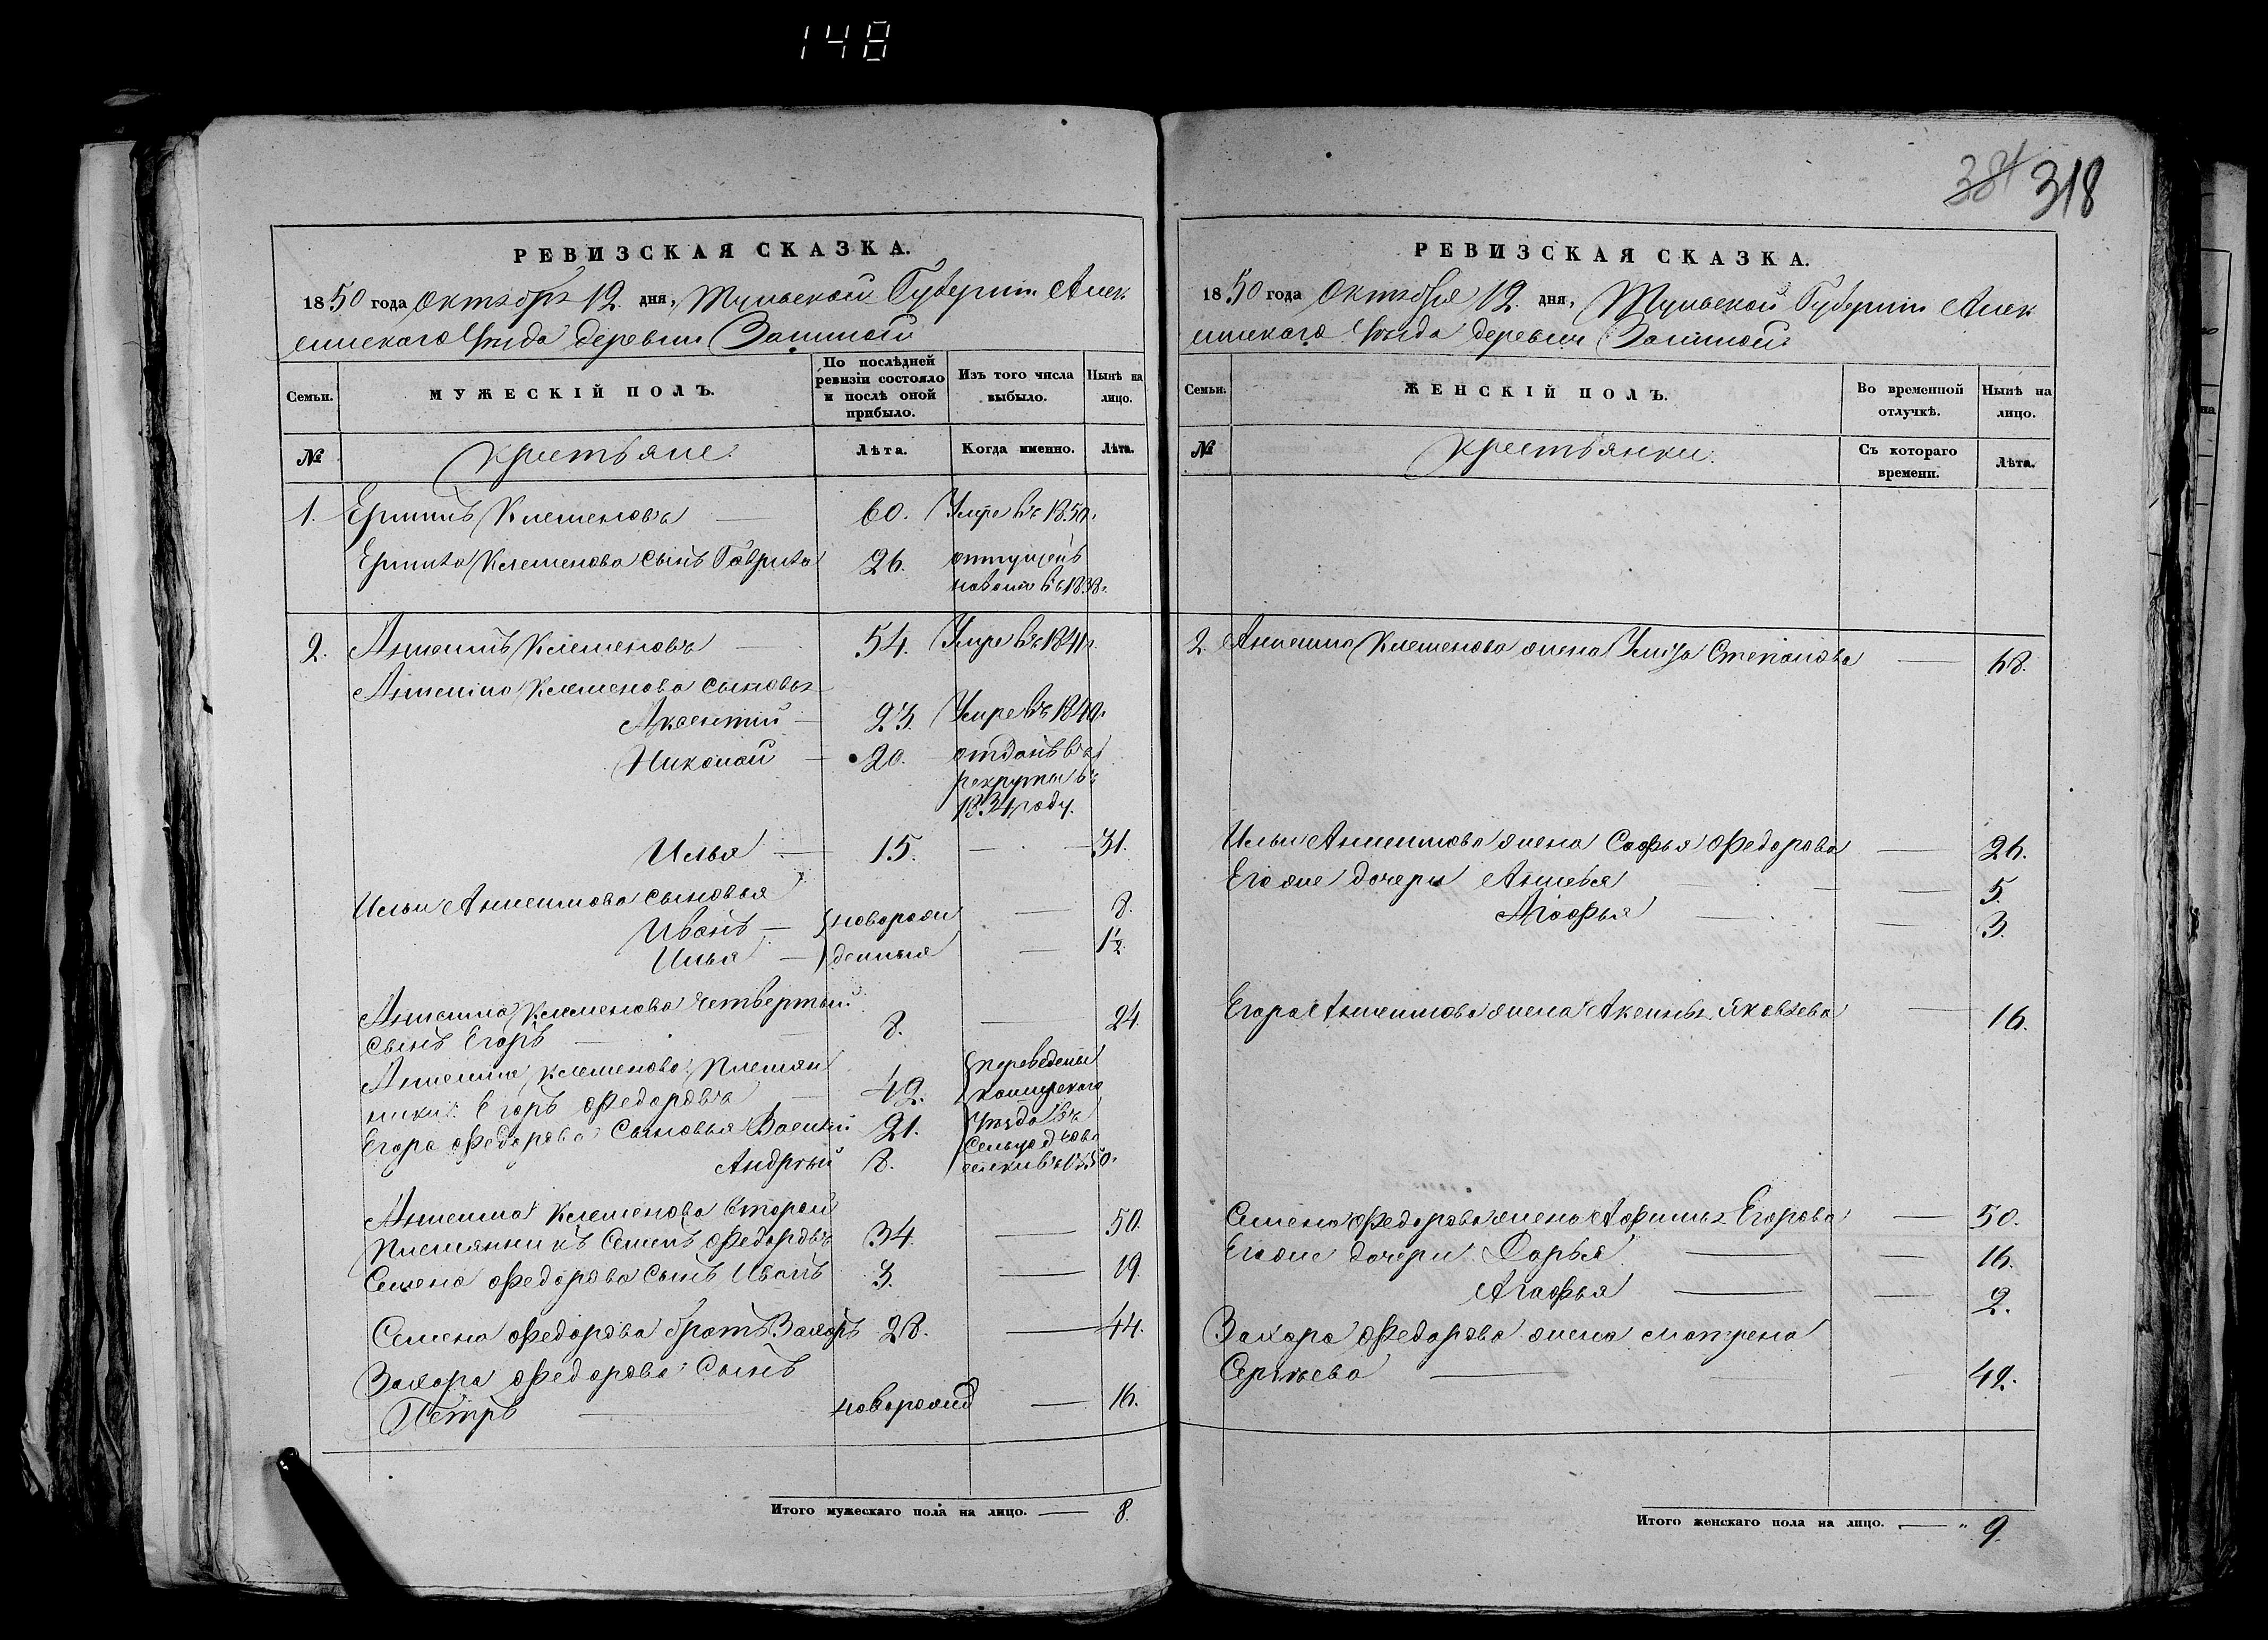 148
384 318
РЕВИЗСКАЯ СКАЗКА.
1850 года Октября 12. дня, Тульской Губернiи Алек
синскаго Уѣзда деревни
Семьи.
МУЖЕСКIЙ ПОЛЪ.
По послѣдней ревизiи состояло и послѣ оной прибыло.
Изъ того числа выбыло.
Нынѣ на лицо.
№
Крестьяне.
Лѣта.
Когда именно.
Лѣта.
1. Ермилъ Клеменовъ — 60. Умре въ 1850.
Ермила Клеменова сынъ Гаврила 26. отпущенъ
на волю въ 1838.
2. Анисимъ Клеменовъ — 54. Умре въ 1841.
Анисима Клеменова сыновья
Аксентiй — 23. Умре въ 1840.
Николай — 20. отданъ въ
рекруты въ
1834 году.
Илья — 15. — 31.
Ильи Анисимова сыновья
Иванъ — новорож — 8.
Илья — денныя — 1½.
Анисима Клеменова четвертый
сынъ Егоръ — 8. — 24.
Анисима Клеменова племян
ники: Егоръ Федоровъ — 42. переведены
Каширскаго
Егора Федорова сыновья Василiй 21. Уѣзда въ
Сельцо
Андрѣй 8. въ 1850.
Анисима Клеменова второй
племянникъ Семенъ Федоровъ 34. — 50.
Семена Федорова сынъ Иванъ 3. — 19.
Семена Федорова братъ Захаръ 28. — 44.
Захара Федорова сынъ
Петръ — новорожд — 16.
Итого мужескаго пола на лицо. — 8.
РЕВИЗСКАЯ СКАЗКА.
1850 года Октября 12. дня, Тульской Губернiи Алек
синскаго Уѣзда деревни
Семьи.
ЖЕНСКIЙ ПОЛЪ.
Во временной отлучкѣ.
Нынѣ на лицо.
№
Крестьянки.
Съ котораго времени.
Лѣта.
2. Анисима Клеменова жена Степанова — 68.
Ильи Анисимова жена Софья Федорова — 26.
Его же дочери Анисья — 5.
Агафья — 3.
Егора Анисимова жена Аксинья Яковлева — 16.
Семена Федорова жена Афимья Егорова — 50.
Его же дочери Дарья — 16.
Агафья — 2.
Захара Федорова жена Матрена
Сергѣева — 42.
Итого женскаго пола на лицо. — 9.